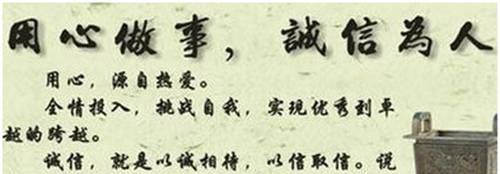 用心做事，誠信為人
用心，源自热爱。
全情投入，挑战自我，实现优秀到卓
越的跨越。
诚信，就是以诚相待，以信取信。说